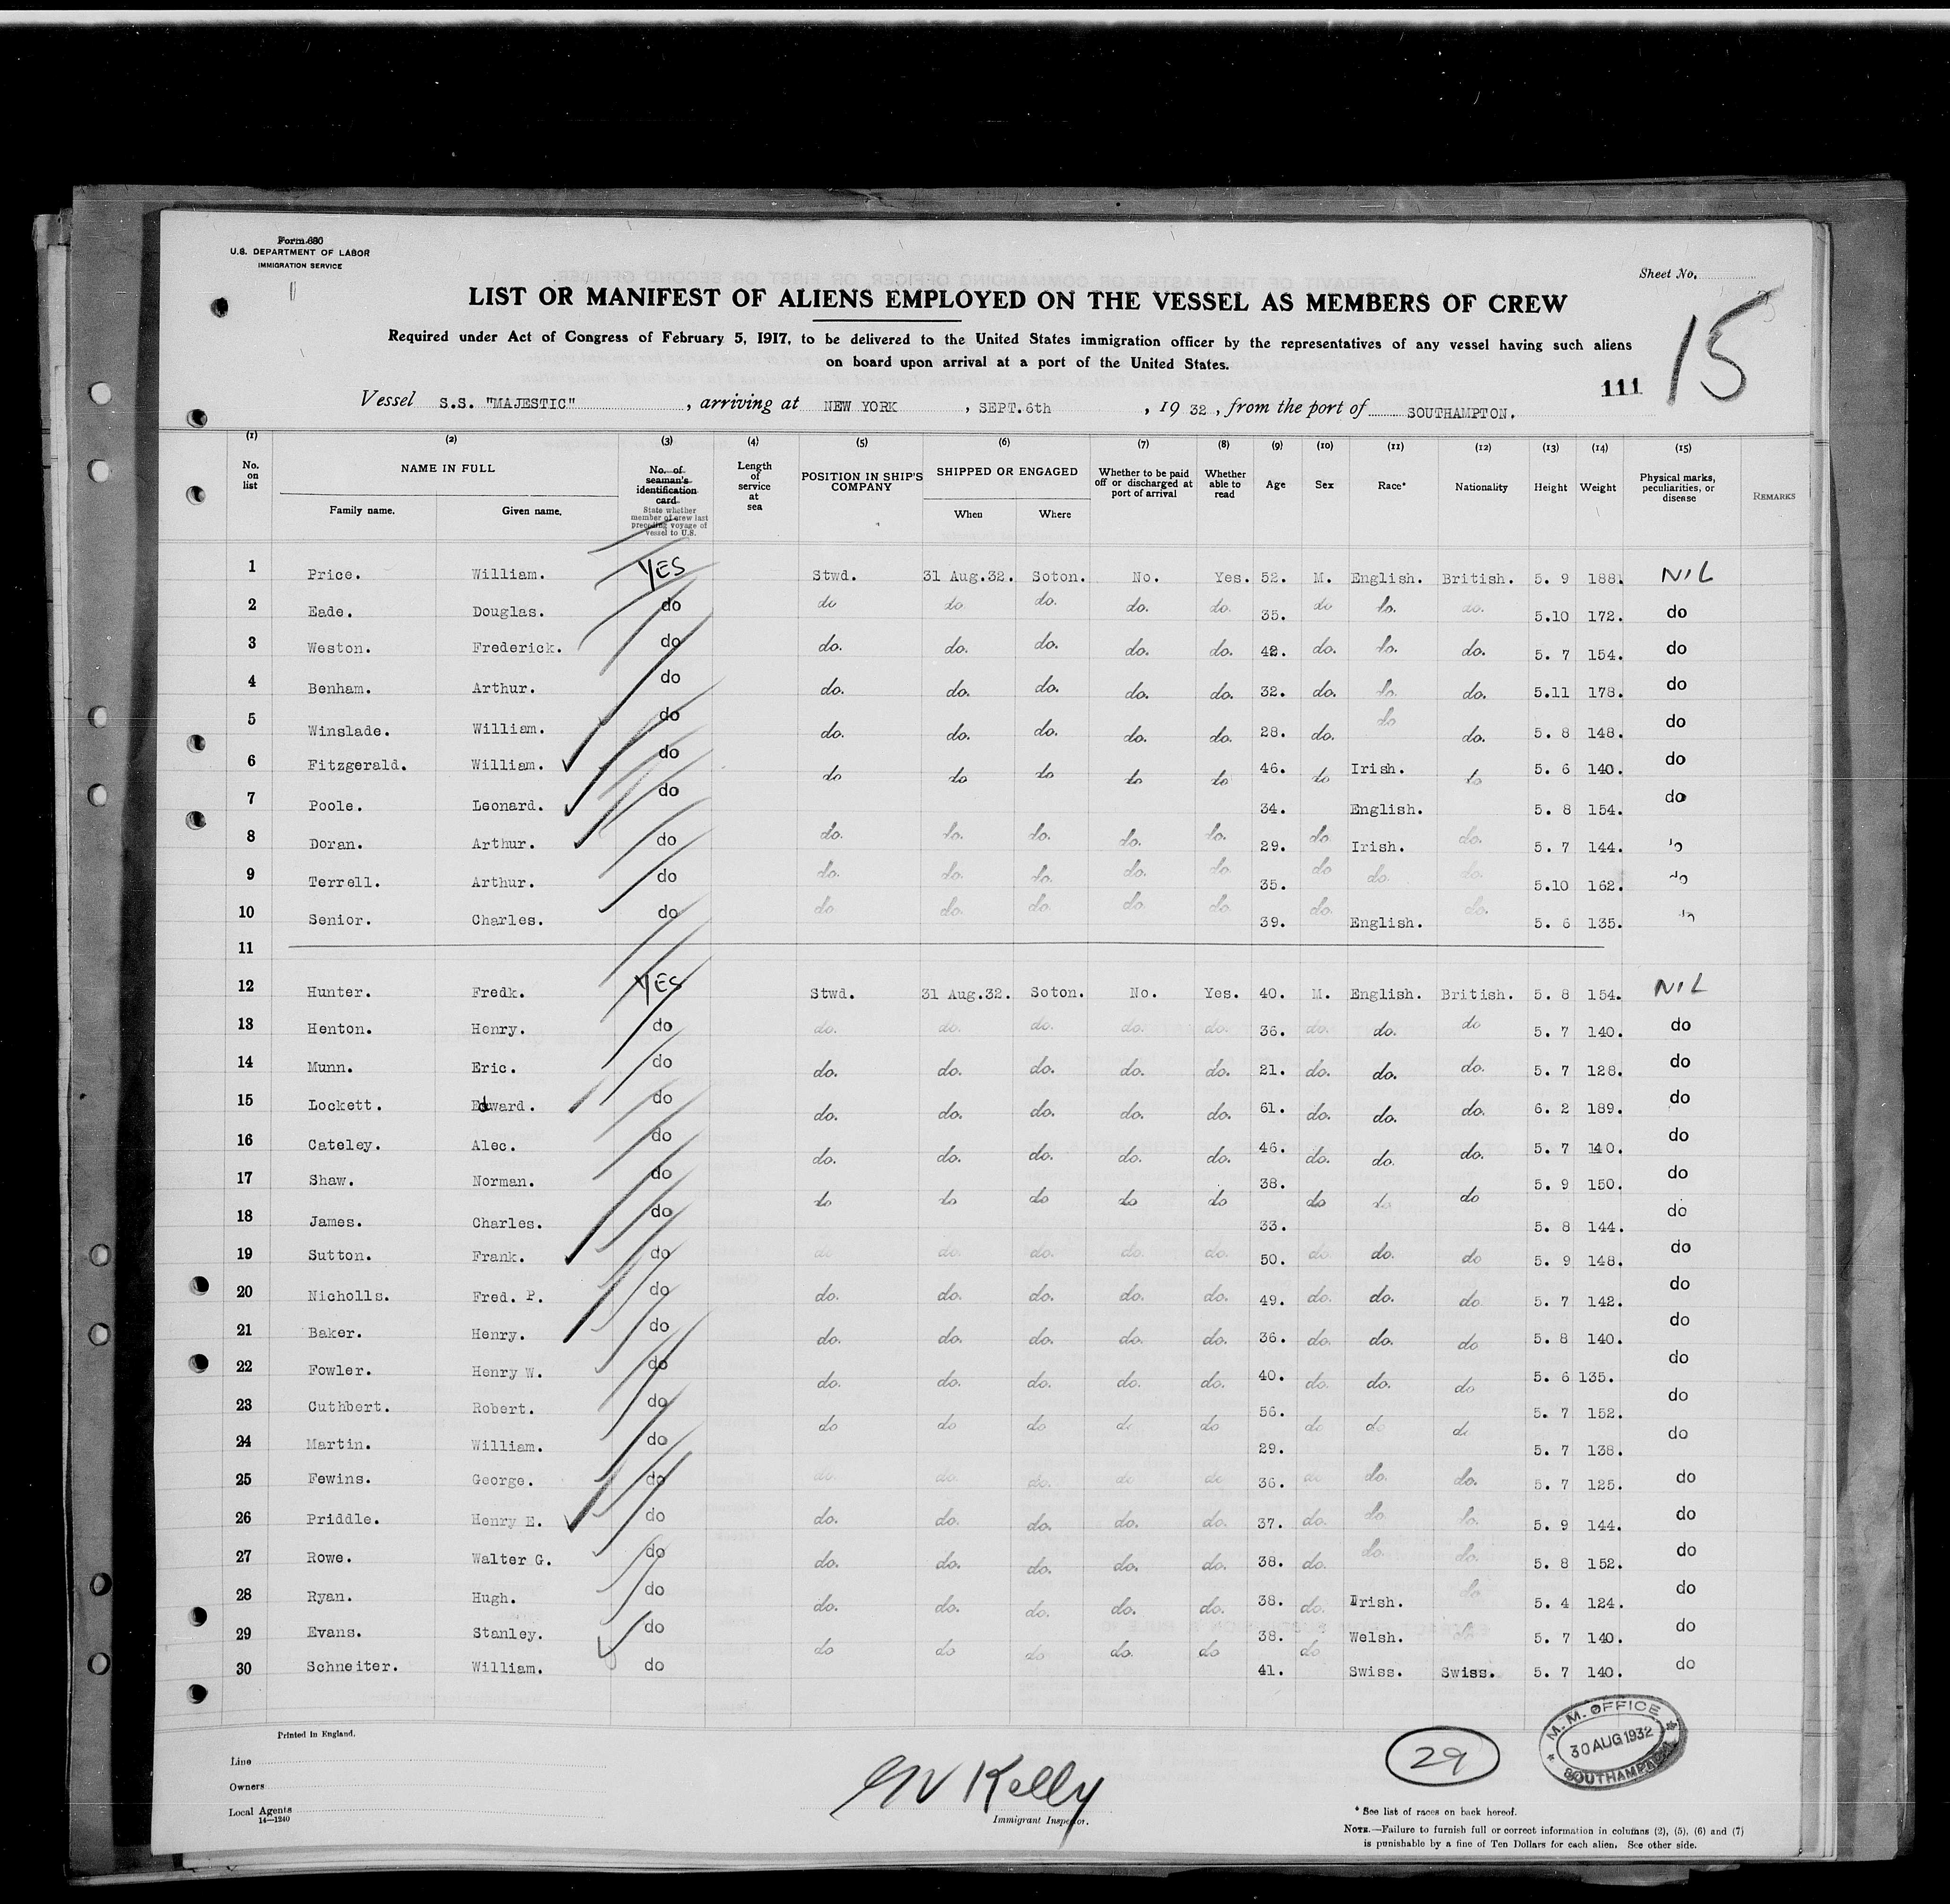 Form 680
U.S. DEPARTMENT OF LABOR
IMMIGRATION SERVICE
Sheet No.
15
LIST OR MANIFEST OF ALIENS EMPLOYED ON THE VESSEL AS MEMBERS OF CREW
Required under Act of Congress of February 5, 1917, to be delivered to the United States immigration officer by the representatives of any vessel having such aliens
on board upon arrival at a port of the United States.
111
Vessel S.S. "MAJESTIC", arriving at NEW YORK, SEPT.6th, 19 32, from the port of SOUTHAMPTON.
(1) (2) (3) (4) (5) (6) (7) (8) (9) (10) (11) (12) (13) (14) (15)
No. on list NAME IN FULL Family name. Given name. No. of seaman's identification card State whether member of crew last preceding voyage of vessel to U.S. Length of service at sea POSITION IN SHIP'S COMPANY SHIPPED OR ENGAGED When Where Whether to be paid off or discharged at port of arrival Whether able to read Age Sex Race* Nationality Height Weight Physical marks, peculiarities, or disease REMARKS
1 Price. William. YES Stwd. 31 Aug.32. Soton. No. Yes. 52. M. English. British. 5. 9 188. NIL
2 Eade. Douglas. do do do. do. do. do. 35. do do. do. 5.10 172. do
3 Weston. Frederick. do do. do. do. do. do. 42. do. do. do. 5. 7 154. do
4 Benham. Arthur. do do. do. do. do. do. 32. do. do. do. 5.11 178. do
5 Winslade. William. do do. do. do. do. do. 28. do. do do. 5. 8 148. do
6 Fitzgerald. William. do do do do do do 46. do Irish. do 5. 6 140. do
7 Poole. Leonard. do 34. English. 5. 8 154. do
8 Doran. Arthur. do do. do. do. do. do. 29. do. Irish. do. 5. 7 144. do
9 Terrell. Arthur. do do. do. do. do. do. 35. do do. do. 5.10 162. do
10 Senior. Charles. do do do. do. do. do. 39. do. English. do. 5. 6 135. do
11
12 Hunter. Fredk. YES Stwd. 31 Aug.32. Soton. No. Yes. 40. M. English. British. 5. 8 154. NIL
13 Henton. Henry. do do. do. do. do. do. 36. do. do. do 5. 7 140. do
14 Munn. Eric. do do. do. do. do. do. 21. do. do. do. 5. 7 128. do
15 Lockett. Edward. do do. do. do. do. do. 61. do. do. do. 6. 2 189. do
16 Cateley. Alec. do do. do. do. do. do. 46. do. do. do. 5. 7 140. do
17 Shaw. Norman. do do do do do do 38. do do do 5. 9 150. do
18 James. Charles. do 33. 5. 8 144. do
19 Sutton. Frank. do do do. do. do. do. 50. do do. do 5. 9 148. do
20 Nicholls. Fred. P. do do. do. do. do. do. 49. do. do. do 5. 7 142. do
21 Baker. Henry. do do. do. do. do. do. 36. do. do. do 5. 8 140. do
22 Fowler. Henry W. do do. do. do. do. do. 40. do. do. do 5. 6 135. do
23 Cuthbert. Robert. do do do do do do 56. do do do 5. 7 152. do
24 Martin. William. do 29. 5. 7 138. do
25 Fewins. George. do do do. do. do do 36. do do. do. 5. 7 125. do
26 Priddle. Henry E. do do. do. do. do. do. 37. do. do. do. 5. 9 144. do
27 Rowe. Walter G. do do. do. do. do. do. 38. do. do. do. 5. 8 152. do
28 Ryan. Hugh. do do. do. do. do. do. 38. do. Irish. do 5. 4 124. do
29 Evans. Stanley. do do do do do. do 38. do Welsh. do 5. 7 140. do
30 Schneiter. William. do 41. Swiss. Swiss. 5. 7 140. do
Printed in England.
Line
Owners
Local Agents
14—1240
Kelly
Immigrant Inspector.
29
M. M. OFFICE
30 AUG 1932
SOUTHAMPTON
* See list of races on back hereof.
NOTE.—Failure to furnish full or correct information in columns (2), (5), (6) and (7)
is punishable by a fine of Ten Dollars for each alien. See other side.